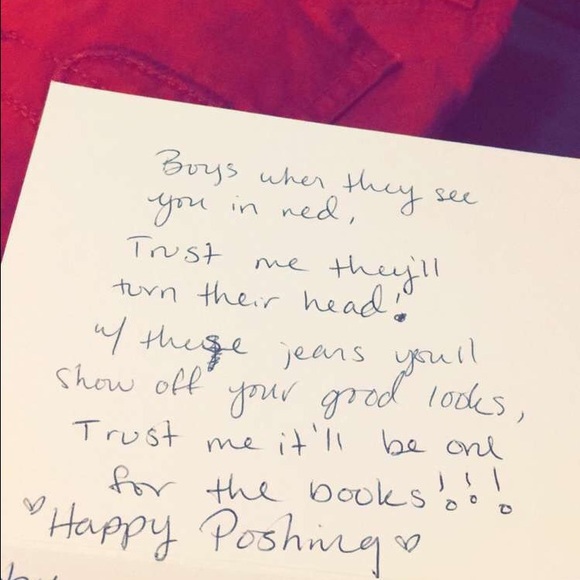 Boys when they see
you in red,
Trust me they'll
turn their head!
w/ these jeans you'll
show off your good looks,
Trust me it'll be one
for the books!!!
♡Happy Poshing♡